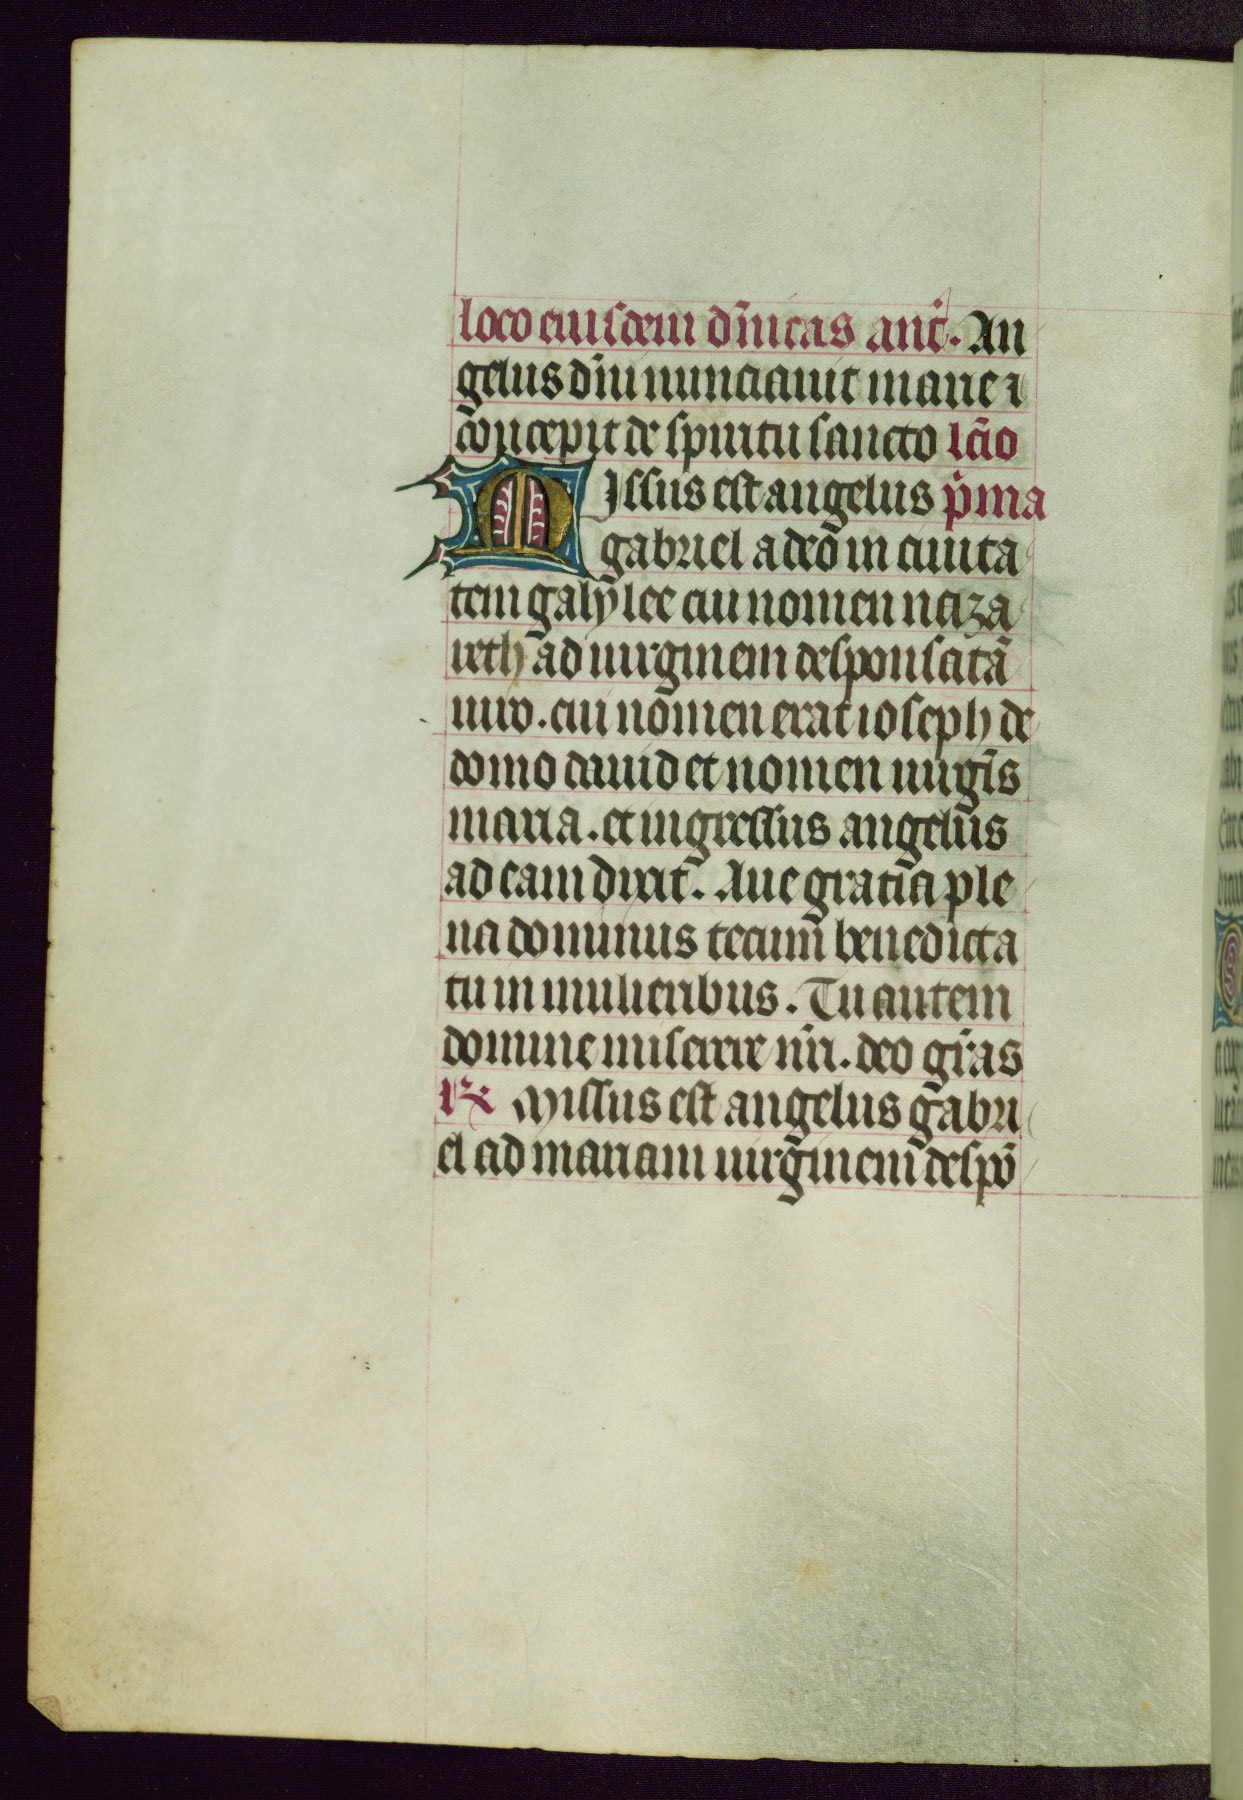 loco eiusdem dn̄icas ant̄. An
gelus dn̄i nunciauit marie ⁊
concepit de spiritu sancto lc̄io
Missus est angelus p̄ma
gabriel a deo in ciuita
tem galylee cui nomen naza
reth ad uirginem desponsatā
uiro. cui nomen erat ioseph de
domo dauid et nomen uirgīs
maria. et ingressus angelus
ad eam dixit. Aue gratia ple
na dominus tecum benedicta
tu in mulieribus. Tu autem
domine miserere nr̄i. deo gr̄as
℞ Missus est angelus gabri
el ad mariam uirginem despō